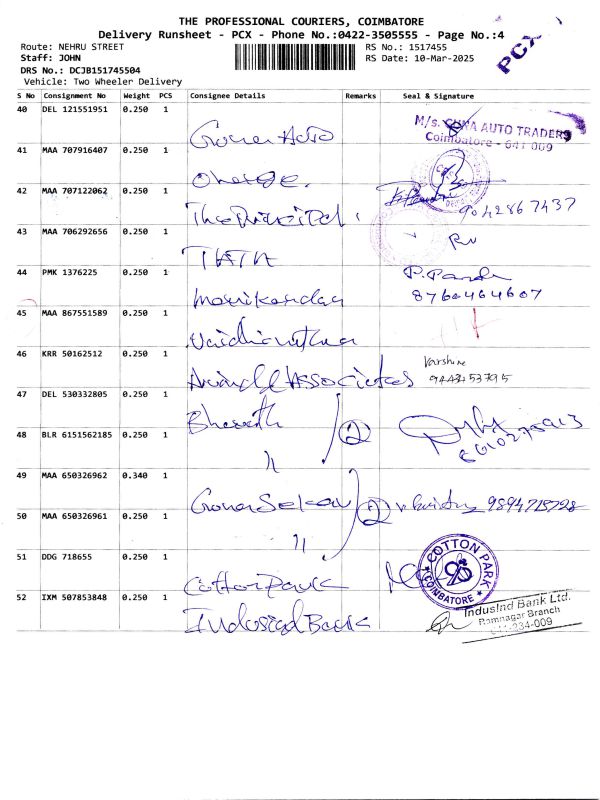 THE PROFESSIONAL COURIERS, COIMBATORE
Delivery Runsheet - PCX - Phone No.:0422-3505555 - Page No.:4
PCX
Route: NEHRU STREET RS No.: 1517455
Staff: JOHN RS Date: 10-Mar-2025
DRS No.: DCJB151745504
Vehicle: Two Wheeler Delivery
S No Consignment No Weight PCS Consignee Details Remarks Seal & Signature
40 DEL 121551951 0.250 1
M/s. AUTO TRADERS
Coimbatore - 641 009
41 MAA 707916407 0.250 1
42 MAA 707122062 0.250 1
9042867437
43 MAA 706292656 0.250 1
TATA
44 PMK 1376225 0.250 1
Manikandan P. Pandi
8760464607
45 MAA 867551589 0.250 1
Vaidhianathan
46 KRR 50162512 0.250 1
Associates Varshini
47 DEL 530332805 0.250 1
Bharath 2
48 BLR 6151562185 0.250 1
"
49 MAA 650326962 0.340 1
2 9894718728
50 MAA 650326961 0.250 1
"
51 DDG 718655 0.250 1
Cotton Park
COTTON PARK
COIMBATORE
52 IXM 507853848 0.250 1
Indusind Bank
IndusInd Bank Ltd.
Ramnagar Branch
641-234-009